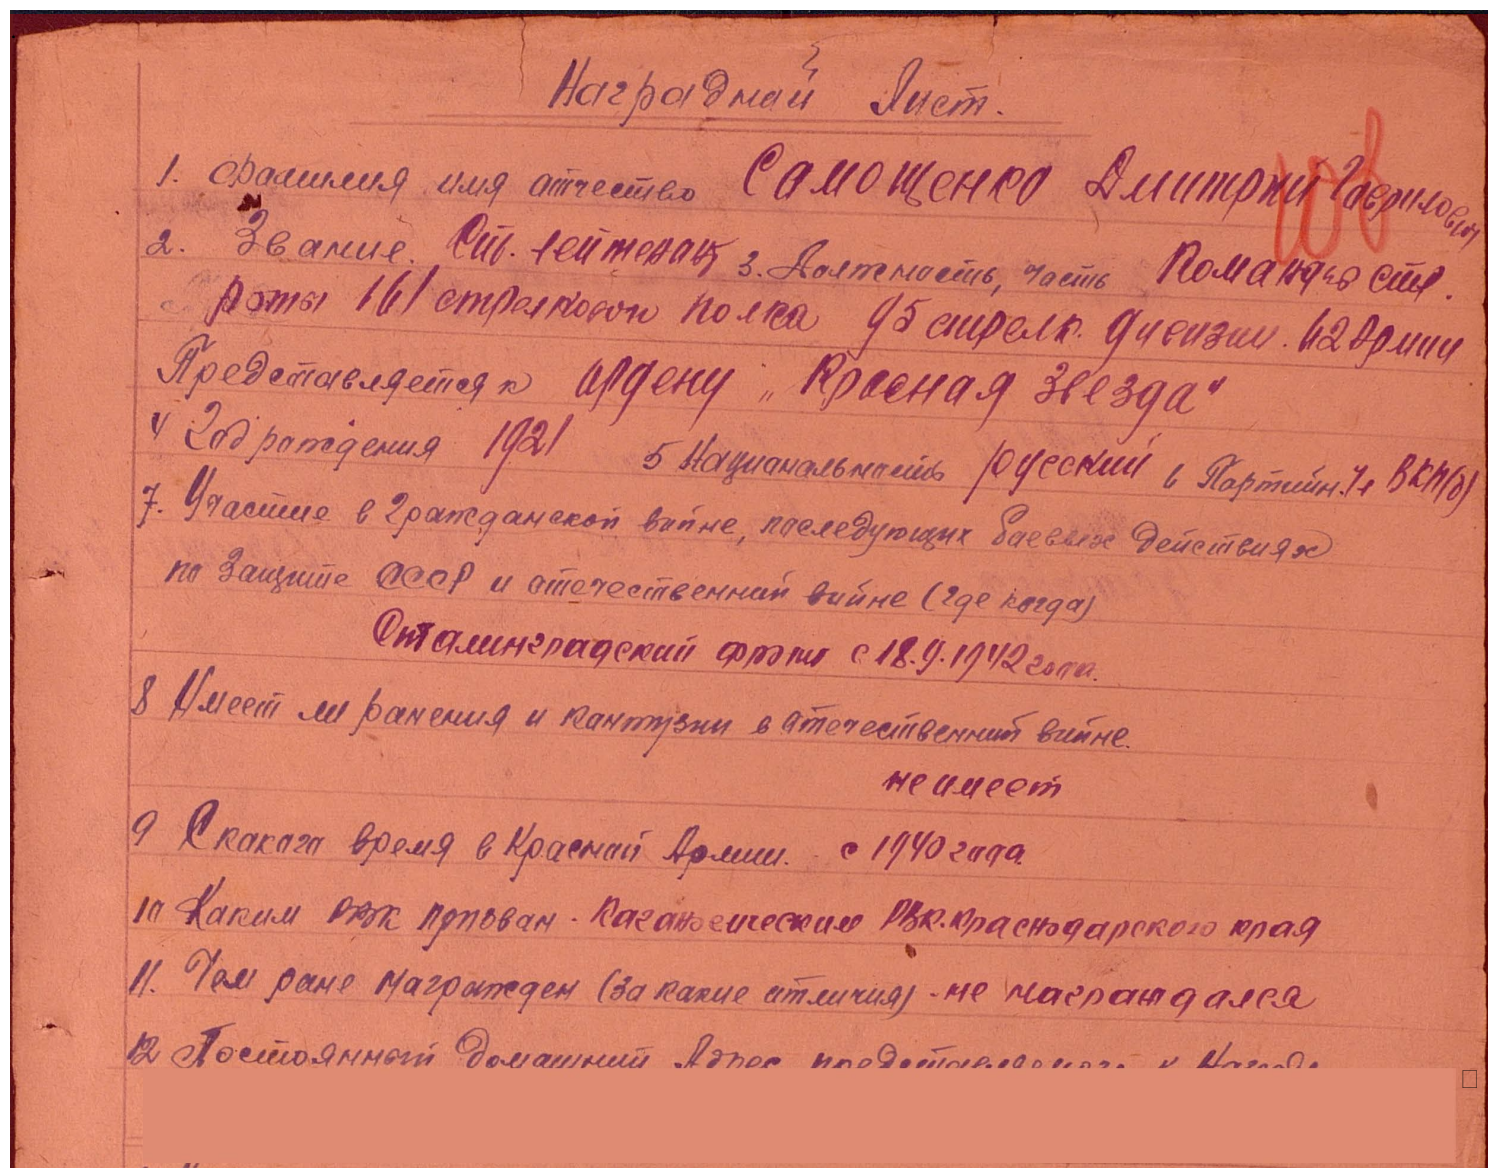 Наградной Лист.
108
1. Фамилия имя отчество Самощенко Дмитрий Гаврилович
2. Звание. Ст. лейтенант 3. Должность, часть Командир стр.
роты 161 стрелкового полка 95 стрелк. дивизии. 62 Армии
Представляется к ордену „Красная Звезда"
4 Год рождения 1921 5 Национальность русский 6 Партийн. Чл ВКП(б)
7. Участие в гражданской войне, последующих боевых действиях
по защите СССР и отечественной войне (где когда)
Сталинградский фронт с 18.9.1942 года.
8 Имеет ли ранения и контузии в отечественной войне.
не имеет
9 С какого время в Красной Армии. с 1940 года
10 Каким РВК призван - Кагановическим РВК. Краснодарского края
11. Чем ране награжден (за какие отличия) - не награждался
12 Постоянный домашний Адрес представляемого к Награде